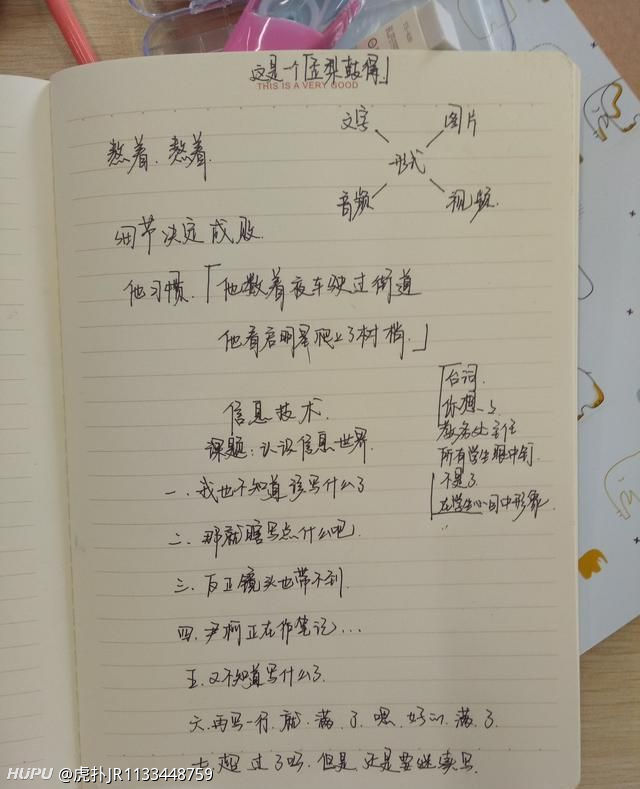 这是一个「歪梨鼓得」
THIS IS A VERY GOOD
文字 图片
形式
音频 视频
熬着、熬着
细节决定成败
他习惯「他数着夜车驶过街道
他看启明星爬上了树梢」
信息技术
课题:认识信息世界
一、我也不知道该写什么了
二、那就瞎写点什么吧
三、反正镜头也带不到
四、尹柯正在作笔记...
五、又不知道写什么了
六、再写一行就满了嗯、好的满了
七、超过了吗、但是还是要继续写
「台词
你想
教务处主任
所有学生眼中钉
不是了
在学生心目中形象
HUPU @虎扑JR1133448759